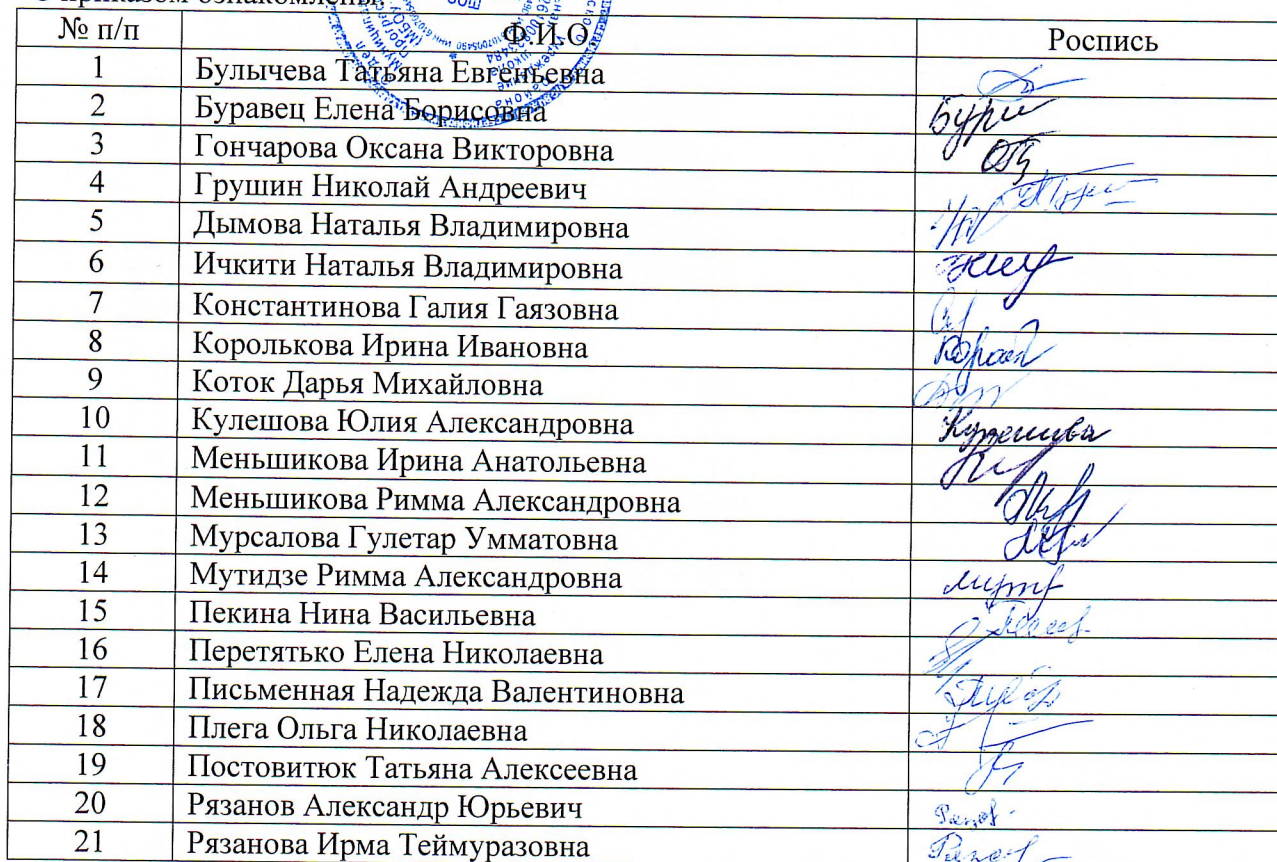 приказом ознакомлены
№ п/п Ф.И.О Роспись
1 Булычева Татьяна Евгеньевна
2 Буравец Елена Борисовна
3 Гончарова Оксана Викторовна
4 Грушин Николай Андреевич
5 Дымова Наталья Владимировна
6 Ичкити Наталья Владимировна
7 Константинова Галия Гаязовна
8 Королькова Ирина Ивановна
9 Коток Дарья Михайловна
10 Кулешова Юлия Александровна Кулешова
11 Меньшикова Ирина Анатольевна
12 Меньшикова Римма Александровна
13 Мурсалова Гулетар Умматовна
14 Мутидзе Римма Александровна
15 Пекина Нина Васильевна
16 Перетятько Елена Николаевна
17 Письменная Надежда Валентиновна
18 Плега Ольга Николаевна
19 Постовитюк Татьяна Алексеевна
20 Рязанов Александр Юрьевич
21 Рязанова Ирма Теймуразовна